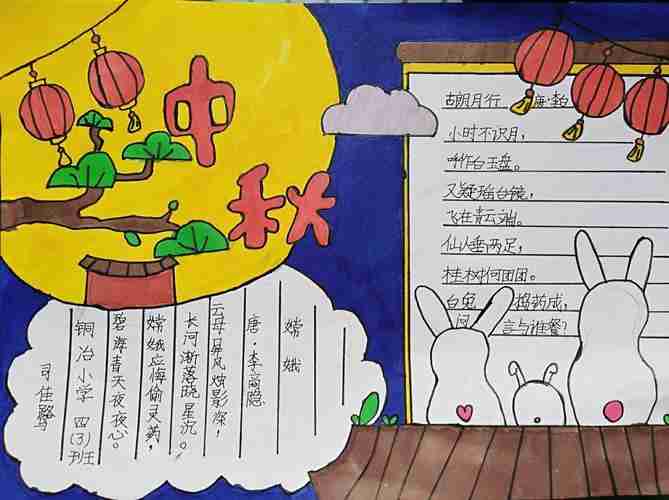 中
秋
古朗月行 唐·李白
小时不识月，
呼作白玉盘。
又疑瑶台镜，
飞在青云端。
仙人垂两足，
桂树何团团。
白兔 捣药成，
问 言与谁餐？
嫦娥
唐·李商隐
云母屏风烛影深，
长河渐落晓星沉。
嫦娥应悔偷灵药，
碧海青天夜夜心。
铜冶小学 四(3)班
司佳